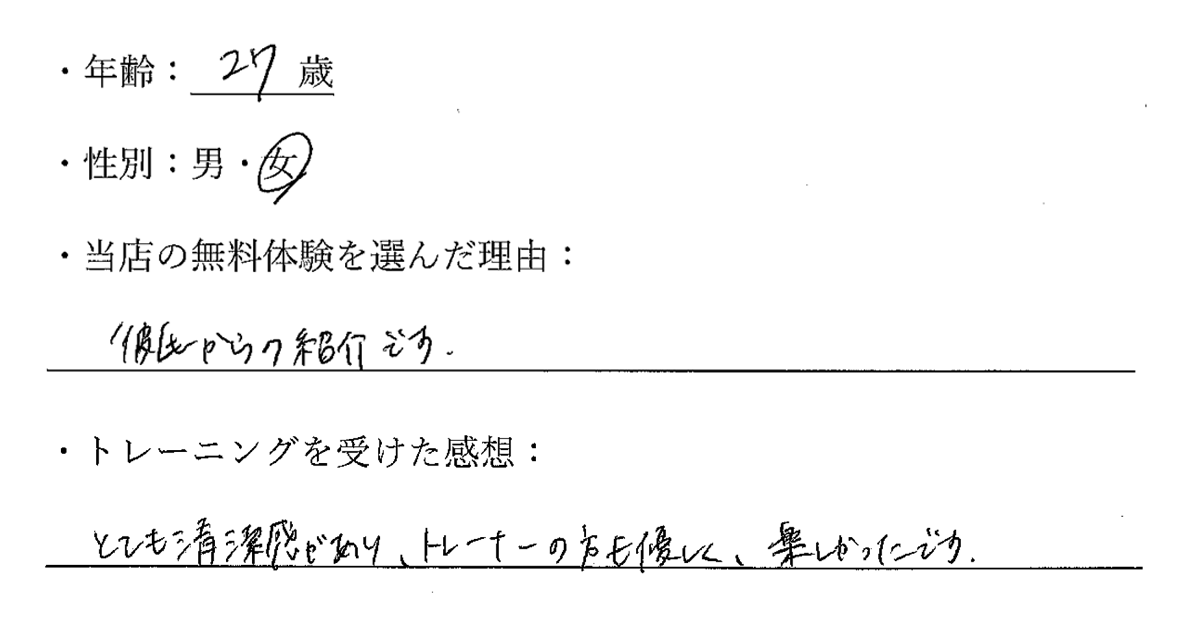 ・年齢：27歳
・性別：男・女
・当店の無料体験を選んだ理由：
彼氏からの紹介です.
・トレーニングを受けた感想：
とても清潔感があり、トレーナーの方も優しく、楽しかったです.